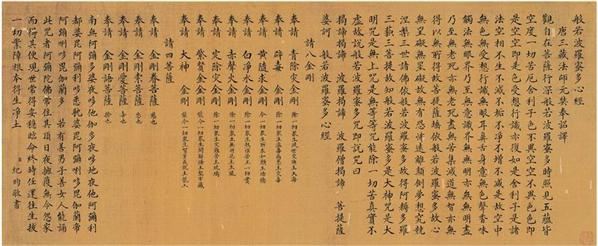 般若波羅蜜多心經
唐三藏法師元奘奉詔譯
觀自在菩薩行深般若波羅蜜多時照見五蘊皆
空度一切苦厄舍利子色不異空空不異色色即
是空空即是色受想行識亦復如是舍利子是諸
法空相不生不滅不垢不淨不增不減是故空中
無色無受想行識無眼耳鼻舌身意無色聲香味
觸法無眼界乃至無意識界無無明亦無無明盡
乃至無老死亦無老死盡無苦集滅道無智亦無
得以無所得故菩提薩埵依般若波羅蜜多故心
無罣礙無罣礙故無有恐怖遠離顛倒夢想究竟
涅槃三世諸佛依般若波羅蜜多故得阿耨多羅
三藐三菩提故知般若波羅蜜多是大神咒是大
明咒是無上咒是無等等咒能除一切苦真實不
虛故說般若波羅蜜多咒即說咒曰
揭諦揭諦 波羅揭諦 波羅僧揭諦 菩提薩
婆訶 般若波羅蜜多心經
請八金剛
奉請 青除災金剛
奉請 辟毒 金剛
奉請 黃隨求金剛
奉請 白淨水金剛
奉請 赤聲火金剛
奉請 定除災金剛
奉請 紫賢 金剛
奉請 大神 金剛
請四菩薩
奉請 金剛眷菩薩
奉請 金剛索菩薩
奉請 金剛愛菩薩
奉請 金剛語菩薩
南無阿彌多婆夜哆他伽多夜哆地夜他阿彌利
都婆毘阿彌唎哆悉耽婆毘阿彌唎哆毘伽蘭帝
阿彌唎哆毘伽蘭多 若有善男子善女人能誦
此咒者阿彌陀佛常住其頂日夜擁護無令怨家
而得其便現世常得安穩臨命終時任運往生拔
一切業障根本得生淨土
臣 紀昀敬書